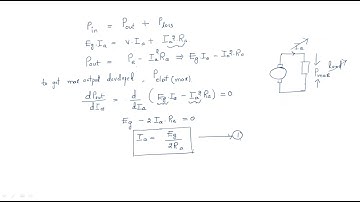 Pin = Pout + Ploss
Eg.Ia = V.Ia + Ia²Ra
Pout = Pe - Ia²Ra ⇒ Eg.Ia - Ia²Ra
to get max output developed - Pelect(max)
dPout/dIa = d/dIa (Eg.Ia - Ia²Ra) = 0
Eg - 2Ia.Ra = 0
Ia = Eg/2Ra → ①
Ia
Pmax
load